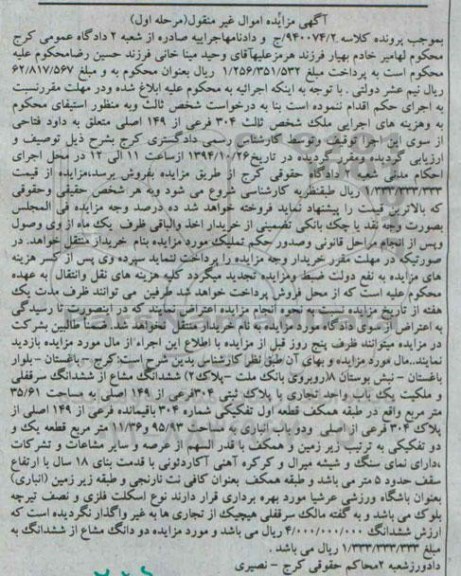 آگهی مزایده اموال غیر منقول(مرحله اول)
بموجب پرونده کلاسه ۹۴۰۰۷۴/۲/ج و دادنامه/اجراییه صادره از شعبه ۲ دادگاه عمومی کرج
محکوم لهامیر خادم بهیار فرزند هرمز علیهآقای وحید مینا خانی فرزند حسین رضامحکوم علیه
محکوم است به پرداخت مبلغ ۱/۲۵۶/۳۵۱/۵۳۲ ریال بعنوان محکوم به و مبلغ ۶۲/۸۱۷/۵۶۷
ریال نیم عشر دولتی . با توجه به اینکه اجرائیه به محکوم علیه ابلاغ شده ودر مهلت مقررنسبت
به اجرای حکم اقدام ننموده است بنا به درخواست شخص ثالث وبه منظور استیفای محکوم
به وهزینه های اجرایی ملک شخص ثالث ۳۰۴ فرعی از ۱۴۹ اصلی متعلق به داود فتاحی
از سوی این اجرا توقیف وتوسط کارشناس رسمی دادگستری کرج بشرح ذیل توصیف و
ارزیابی گردیده ومقرر گردیده در تاریخ ۱۳۹۴/۱۰/۲۶ ازساعت ۱۱ الی ۱۲ در محل اجرای
احکام مدنی شعبه ۲ دادگاه حقوقی کرج از طریق مزایده بفروش برسد،مزایده از قیمت
۱/۳۳۳/۳۳۳/۳۳۳ ریال طبقنظریه کارشناسی شروع می شود وبه هر شخص حقیقی وحقوقی
که بالاترین قیمت را پیشنهاد نماید فروخته خواهد شد ده درصد وجه مزایده فی المجلس
بصورت وجه نقد یا چک بانکی تضمینی از خریدار اخذ والباقی ظرف یک ماه از وی وصول
وپس از انجام مراحل قانونی وصدور حکم تملیک مورد مزایده بنام خریدار منتقل خواهد. در
صورتیکه در مهلت مقرر خریدار وجه مزایده را پرداخت ننماید سپرده وی پس از کسر هزینه
های مزایده به نفع دولت ضبط ومزایده تجدید میگردد کلیه هزینه های نقل وانتقال به عهده
محکوم علیه است که از محل فروش پرداخت خواهد شد طرفین می توانند ظرف مدت یک
هفته از تاریخ مزایده نسبت به نحوه انجام مزایده اعتراض نمایند که در اینصورت تا رسیدگی
به اعتراض از سوی دادگاه مورد مزایده به نام خریدار منتقل نخواهد شد.ضمنا طالبین بشرکت
در مزایده میتوانند ظرف پنج روز قبل از مزایده با اطلاع این اجراء از مال مورد مزایده بازدید
نمایند..مال مورد مزایده و بهای آن طبق نظر کارشناس بدین شرح است:کرج – باغستان – بلوار
باغستان – نبش بوستان ۱۸(روبروی بانک ملت –پلاک۲) ششدانگ مشاع از ششدانگ سرقفلی
و ملکیت یک باب واحد تجاری با پلاک ثبتی ۳۰۴فرعی از ۱۴۹ اصلی به مساحت ۳۵/۶۱
متر مربع واقع در طبقه همکف قطعه اول تفکیکی شماره ۳۰۴ باقیمانده فرعی از ۱۴۹ اصلی از
پلاک ۳۰۴ فرعی از اصلی ودو باب انباری به مساحت ۹۵/۹۳ و۱۱/۳۶ متر مربع قطعه یک و
دو تفکیکی به ترتیب زیر زمین و همکف با قدر السهم از عرصه و سایر مشاعات و مشترکات
،دارای نمای سنگ و شیشه میرال و کرکره آهنی آکاردئونی با قدمت بنای ۱۸ سال با ارتفاع
سقف حدود ۵ متر می باشد و طبقه همکف بعنوان کافی نت نارنجی و طبقه زیر زمین (انباری)
بعنوان باشگاه ورزشی عرشیا مورد بهره برداری قرار دارند نوع اسکلت فلزی و نصف تیرچه
بلوک می باشد و به گفته مالک سرقفلی هیچیک از تجاری ها به غیر واگذار نگردیده است که
ارزش ششدانگ ۴/۰۰۰/۰۰۰/۰۰۰ ریال می باشد و مورد مزایده دو دانگ مشاع از ششدانگ به
مبلغ ۱/۳۳۳/۳۳۳/۳۳۳ ریال می باشد .
دادورزشعبه ۲محاکم حقوقی کرج – نصیری